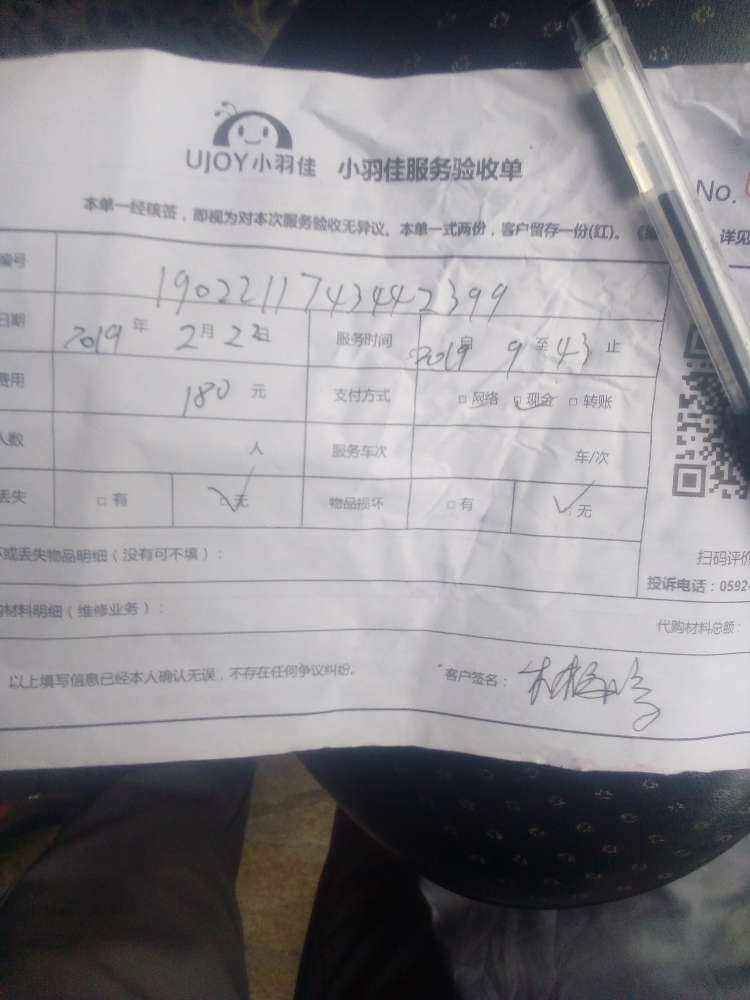 UJOY小羽佳 小羽佳服务验收单
No.
本单一经核签，即视为对本次服务验收无异议。本单一式两份，客户留存一份(红)。 详见
编号 1902211743442399
日期 2019 年 2 月 22 日 服务时间 2019 自 9 至 43 止
费用 180 元 支付方式 □ 网络 □ 现金 □ 转账
人数 人 服务车次 车/次
丢失 □ 有 □ 无 物品损坏 □ 有 □ 无
坏或丢失物品明细（没有可不填）： 扫码评价
投诉电话：0592-
购材料明细（维修业务）： 代购材料总额：
以上填写信息已经本人确认无误，不存在任何争议纠纷。 客户签名：